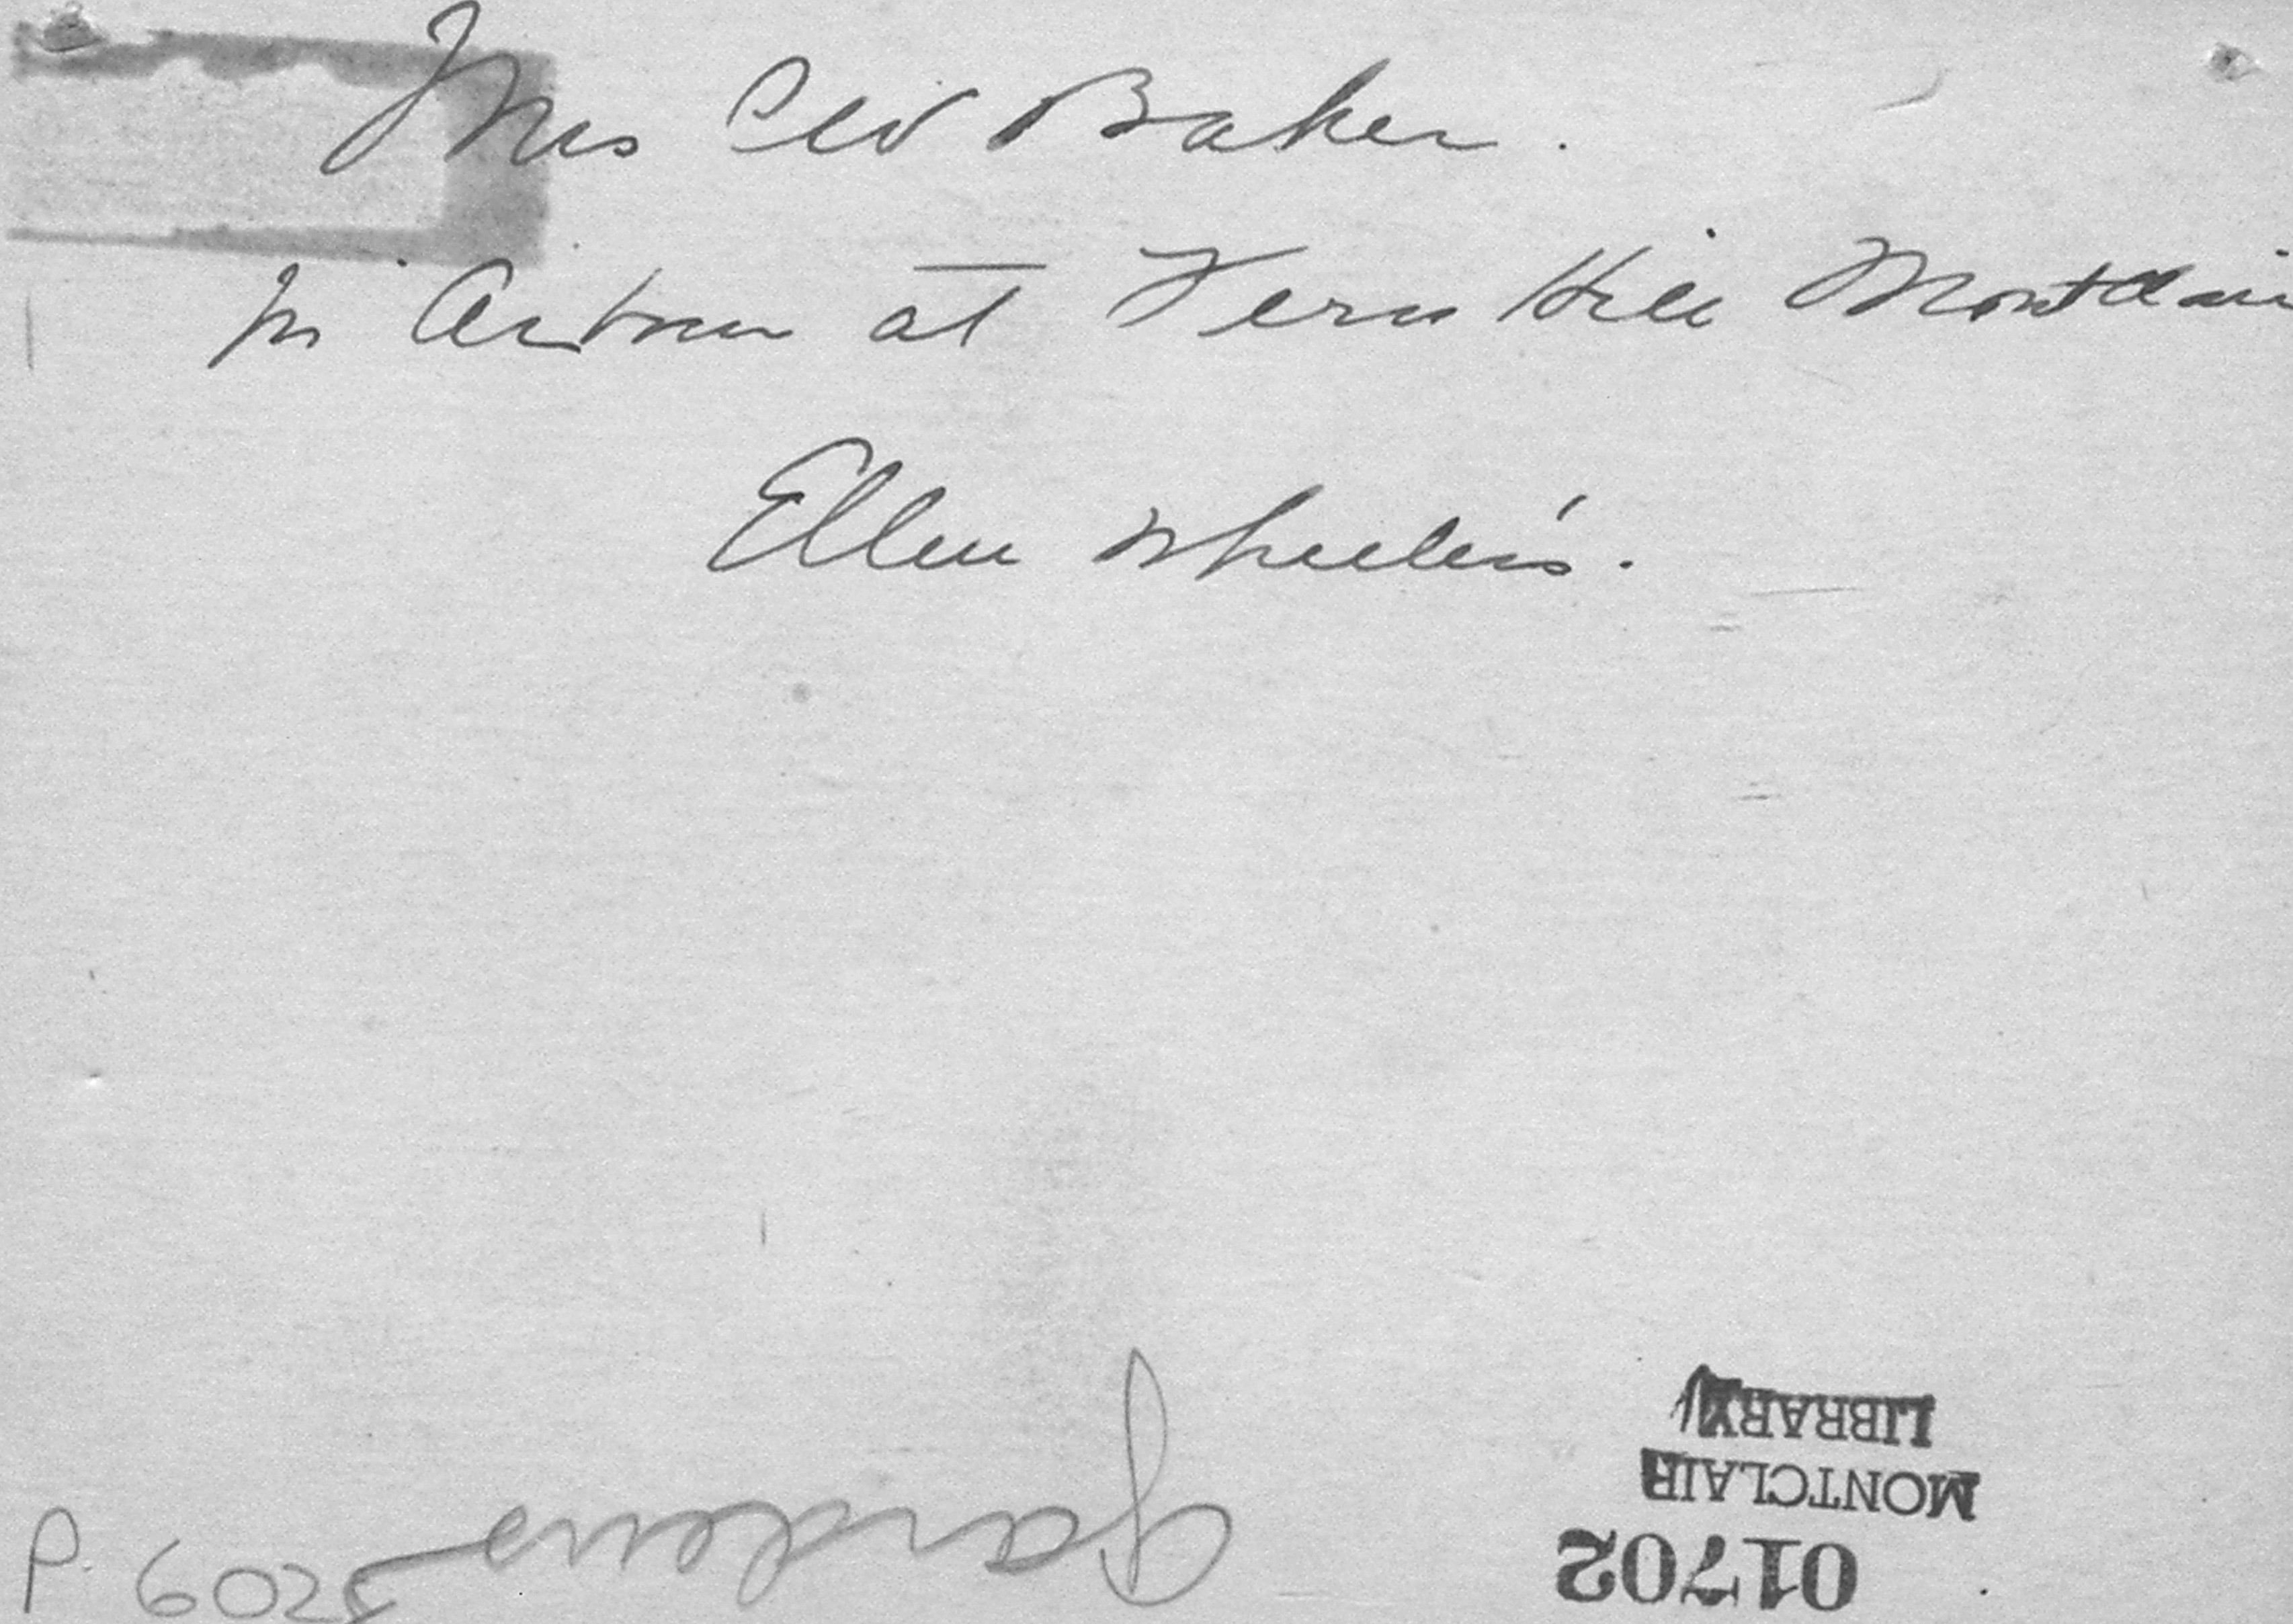 Mrs Baker.
in at Fern Hill Montclair
Ellen Wheeler's.
gardens
P. 6025
01702
MONTCLAIR
LIBRARY